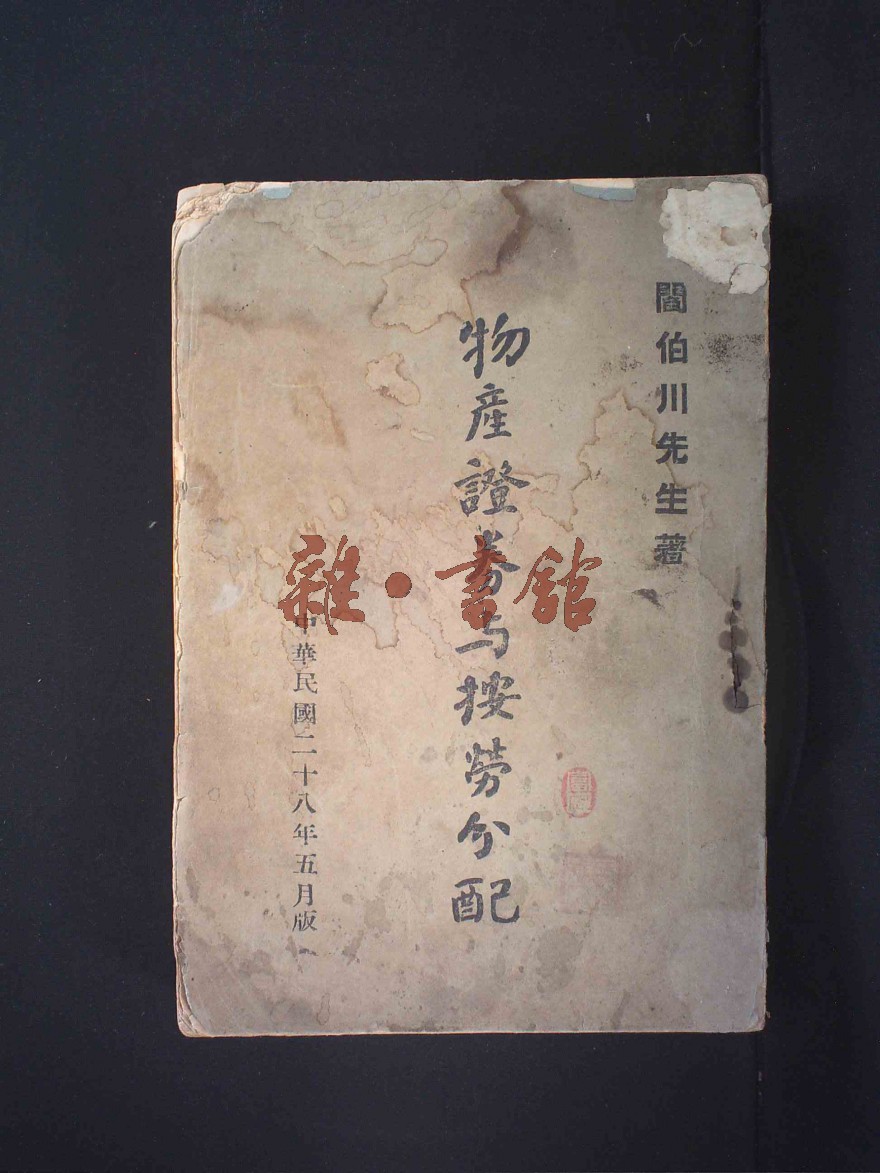 閻伯川先生著
物產證券与按勞分配
中華民國二十八年五月版
雜·書館